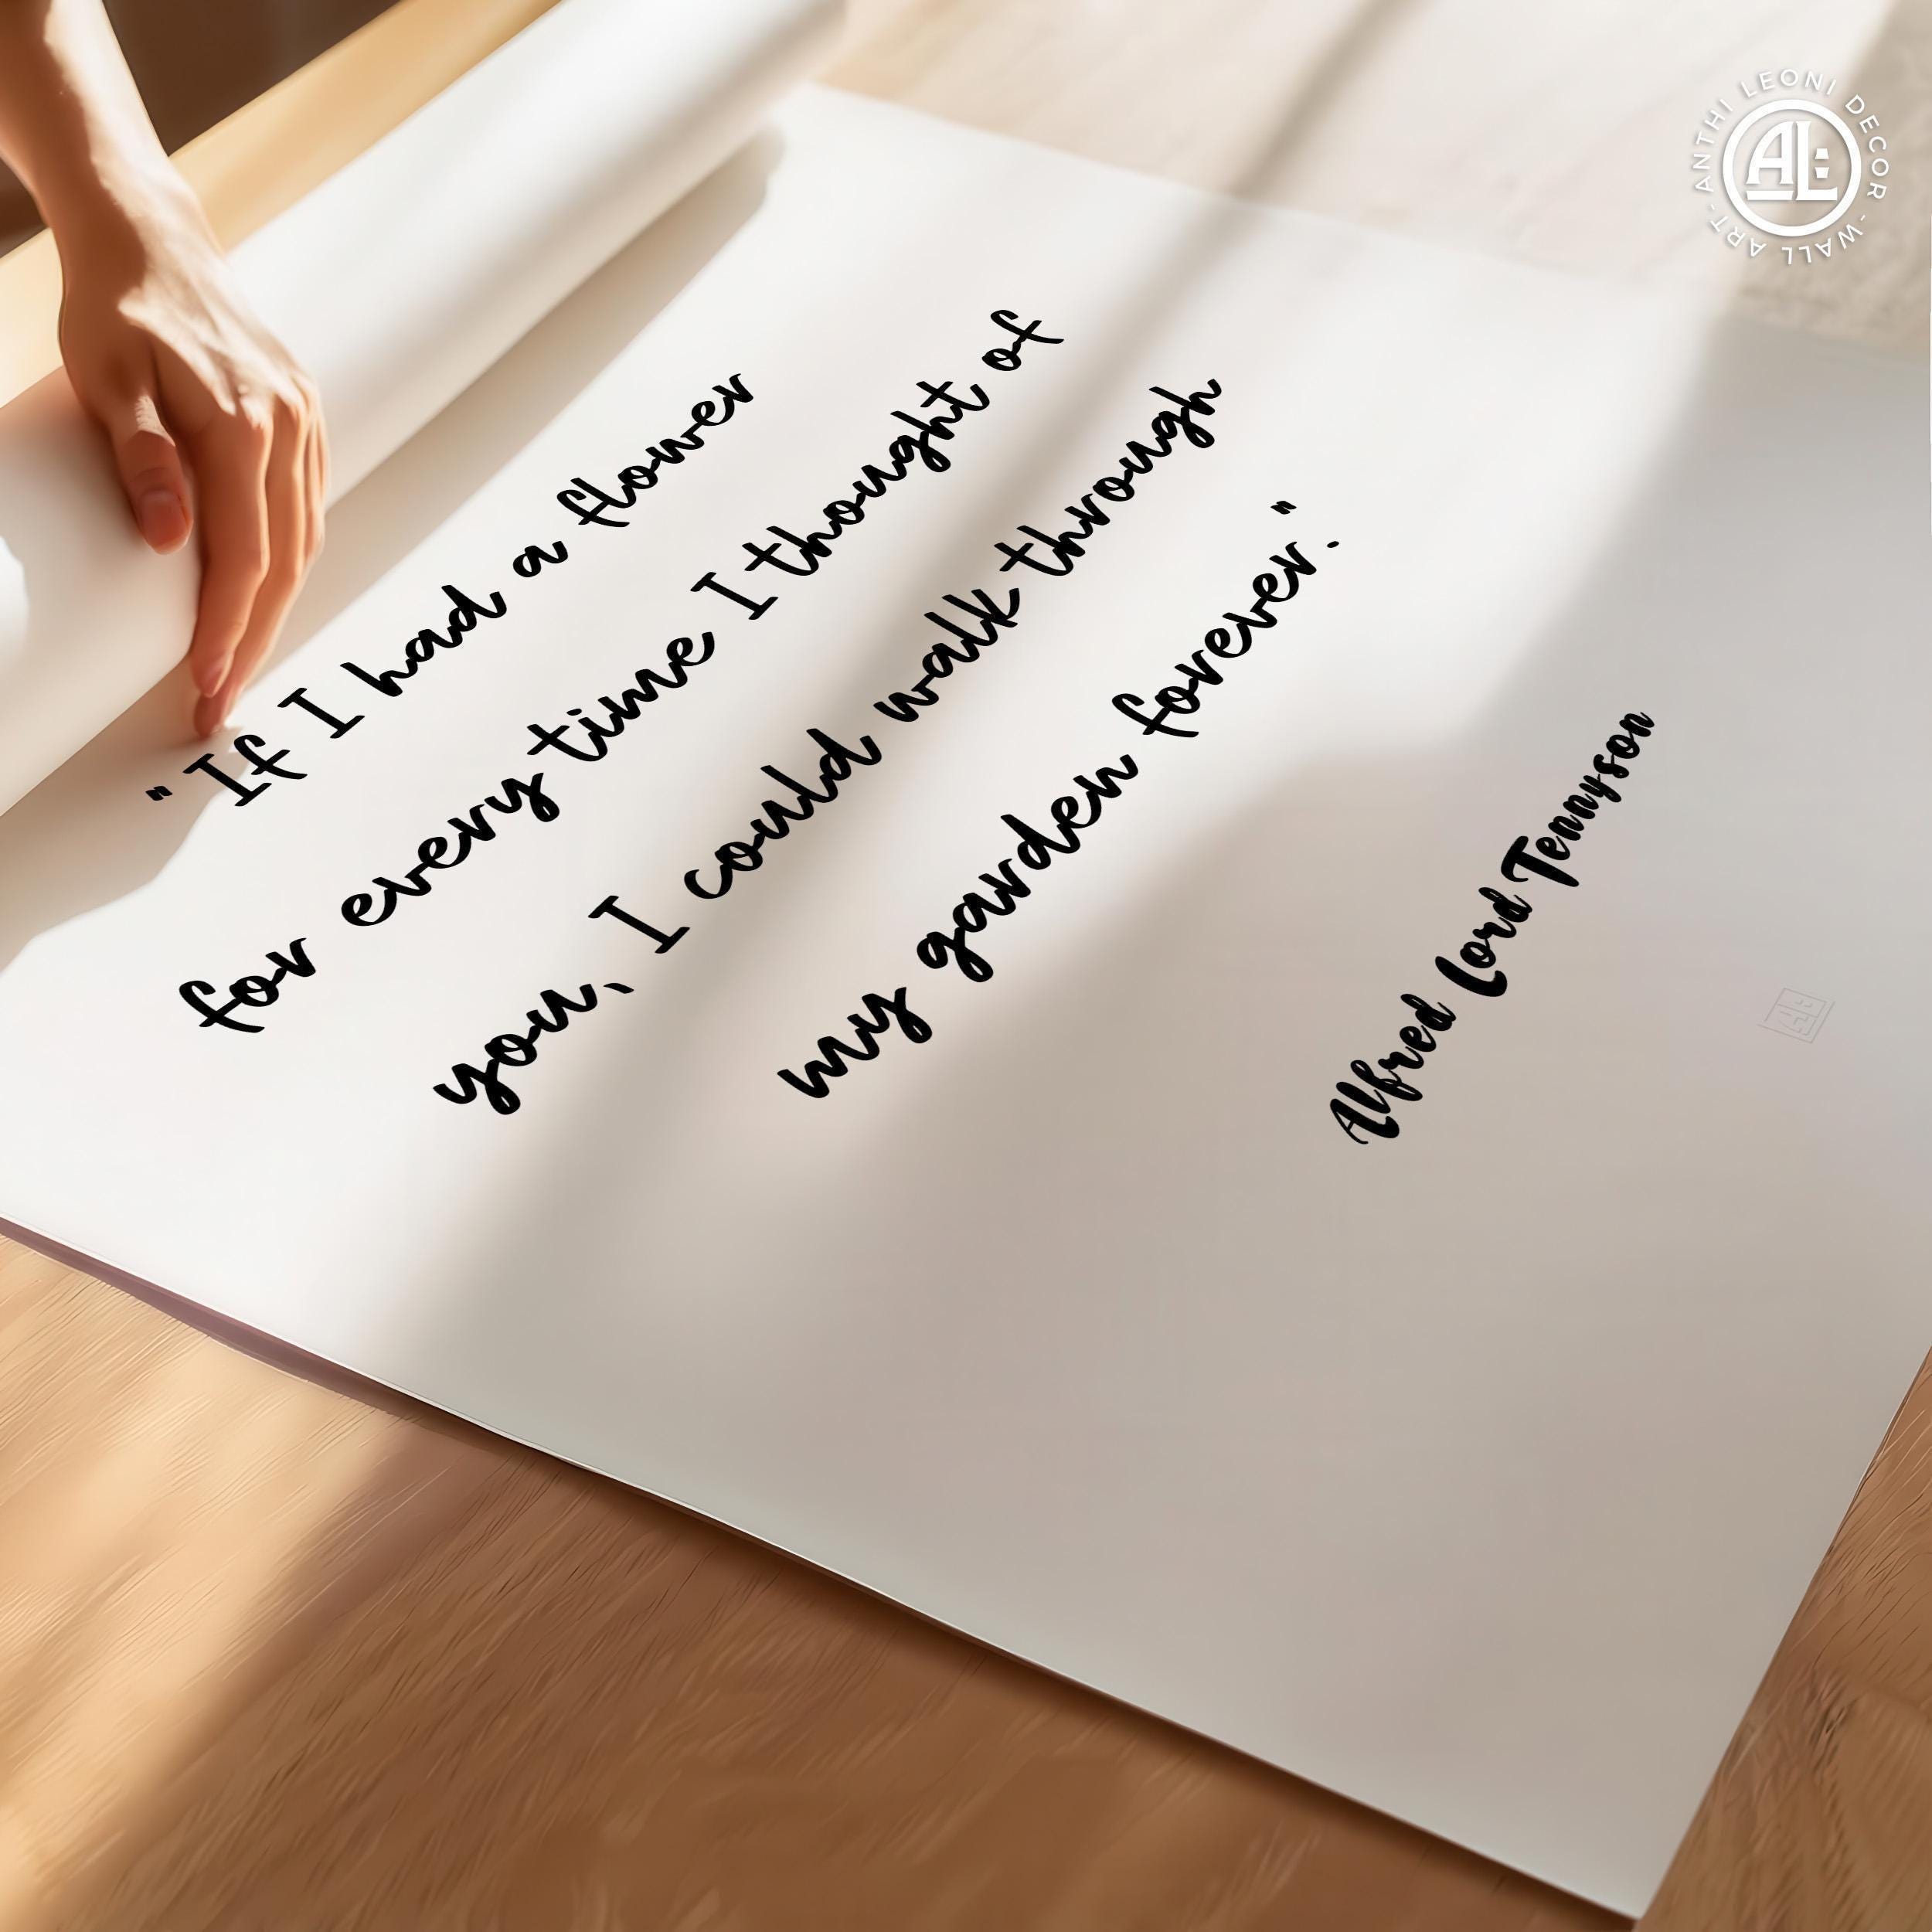 " If I had a flower
for every time I thought of
you, I could walk through
my garden forever. "
Alfred Lord Tennyson
ANTHI LEONI DECOR - WALL ART -
AL